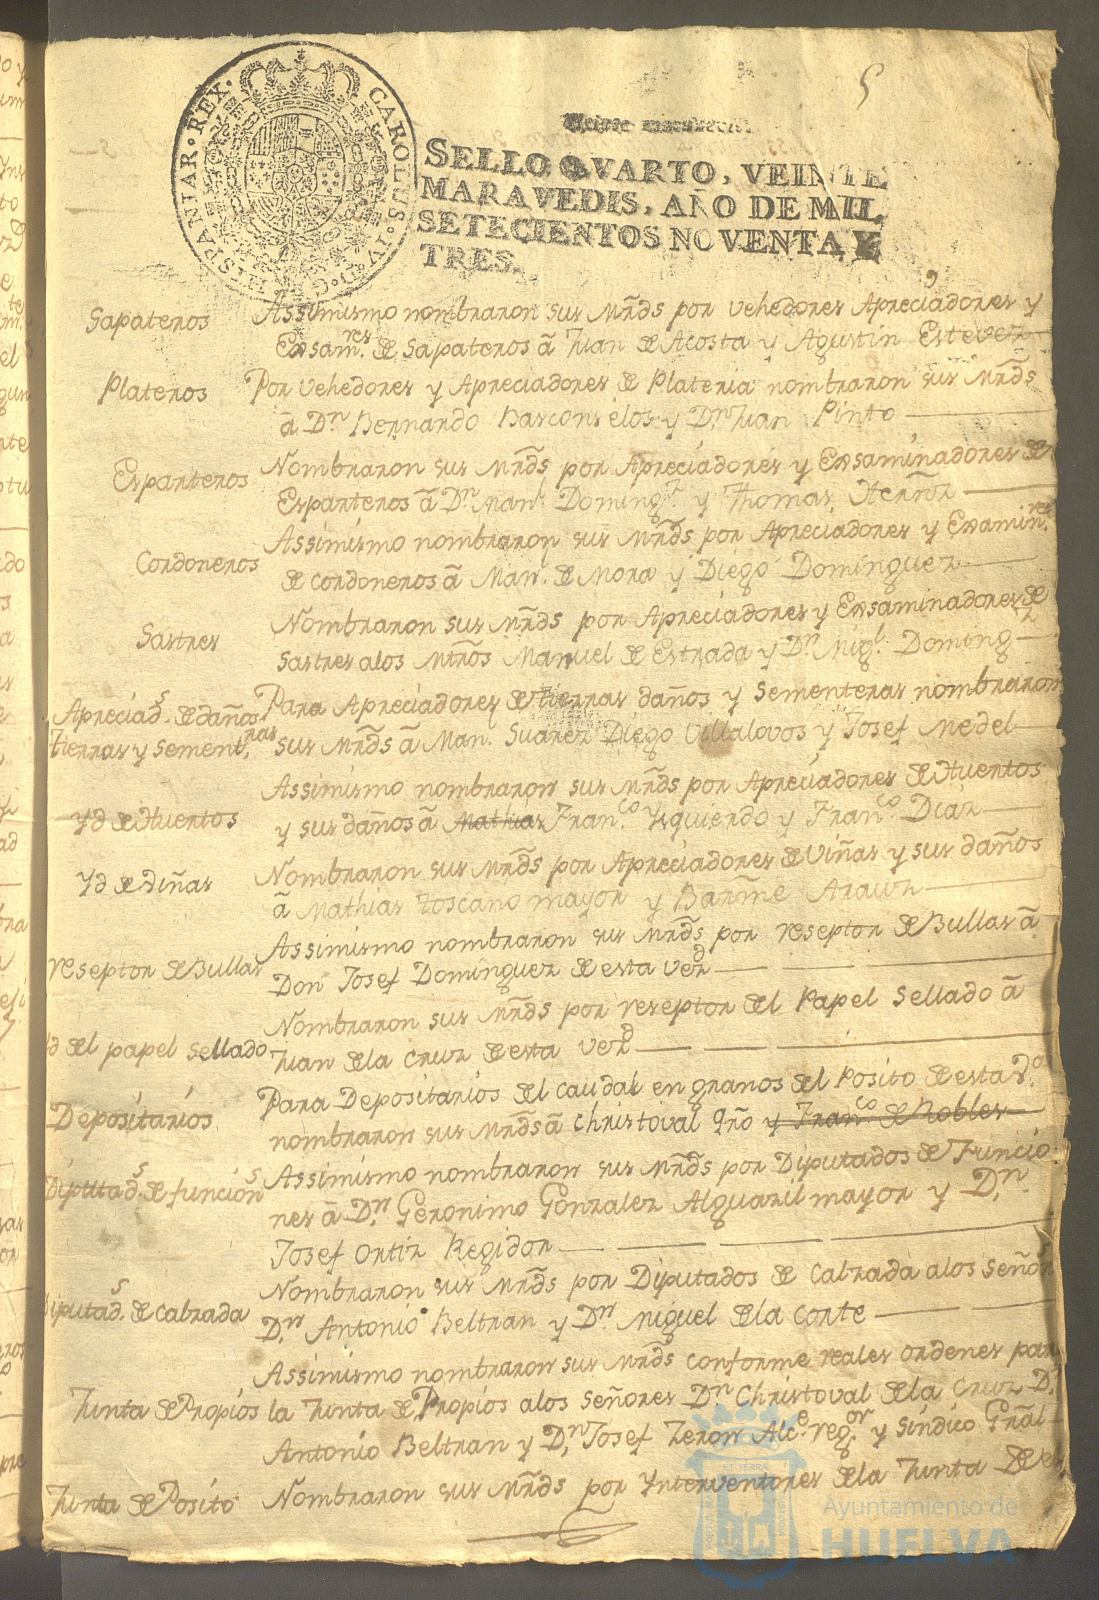 5
HISPANIAR. REX. CAROLUS. IV. D. G.
SELLO QVARTO, VEINTE
MARAVEDIS, AÑO DE MIL
SETECIENTOS NOVENTA Y
TRES.
Sapateros Assimismo nombraron sus Mrds por vehedores Apreciadores y
Exsam.res de Sapateros â Juan de Acosta y Agustin Estevez
Plateros Por vehedores y Apreciadores de Plateria nombraron sus Mrds
â Dn Bernardo Basconselos y Dn Juan Pinto
Esparteros Nombraron sus Mrds por Apreciadores y Exsaminadores de
Esparteros â Dn Manl. Doming.z y Thomas
Cordoneros Assimismo nombraron sus Mrds por Apreciadores y Examin.res
de cordoneros â Manl. de Mora y Diego Dominguez
Sastres Nombraron sus Mrds por Apreciadores y Exsaminadores de
Sastres alos Mtros Manuel de Estrada y Dn Migl. Doming.z
Apreciad.s de daños Para Apreciadores de tierras daños y sementeras nombraron
tierras y sement.ras sus Mrds â Man. Suarez Diego Villalovos y Josef Medel
Yd de Huertos Assimismo nombraron sus Mrds por Apreciadores de Huertos
y sus daños â Mathias Fran.co Yzquierdo y Fran.co Diaz
Yd de viñas Nombraron sus Mrds por Apreciadores de viñas y sus daños
â Mathias Toscano mayor y Barme Arauz
reseptor de Bullas Assimismo nombraron sus Mrds por reseptor de Bullas â
Don Josef Dominguez de esta vezd
Nombraron sus Mrds por reseptor del Papel Sellado â
Yd del papel sellado Juan de la Cruz de esta vezd
Depositarios Para Depositarios del caudal en granos del Posito de esta V.a
nombraron sus Mrds â Christoval y Fran.co de Robles
Diputad.s de función Assimismo nombraron sus Mrds por Diputados de Funcio
nes â Dn. Geronimo Gonzalez Alguazil mayor y Dn.
Josef Ortiz Regidor
Diputad.s de calzada Nombraron sus Mrds por Diputados de calzada alos señor.s
Dn. Antonio Beltran y Dn Miguel de la Corte
Assimismo nombraron sus Mrds conforme reales ordenes para
Junta de Propios la Junta de Propios alos señores Dn Christoval de la Cruz Dn
Antonio Beltran y Dn. Josef Zeron Alc.e regor y Sindico Gral
Junta de Posito Nombraron sus Mrds por Interventores de la Junta
Ayuntamiento de
HUELVA